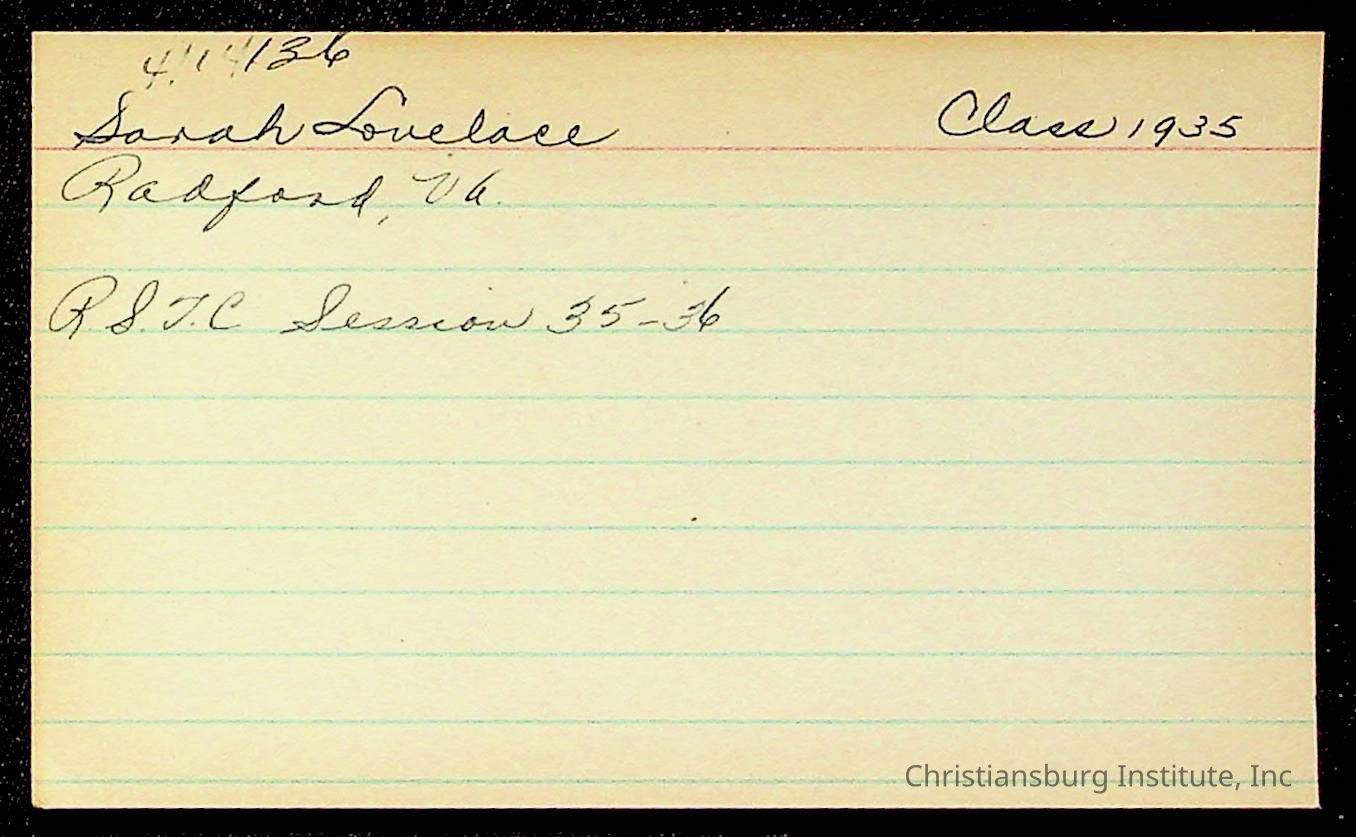 4/14/36
Sarah Lovelace Class 1935
Radford, Va.
R.S.T.C. Session 35-36
Christiansburg Institute, Inc